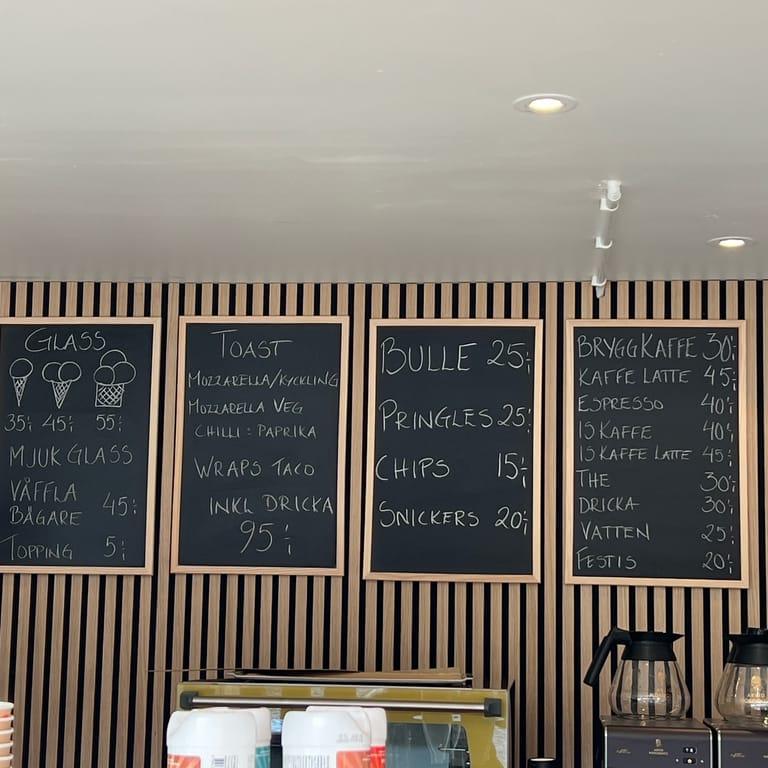 GLASS
35:- 45:- 55:-
MJUK GLASS
VÅFFLA
BÄGARE 45:-
TOPPING 5:-
TOAST
MOZZARELLA/KYCKLING
MOZZARELLA VEG
CHILLI : PAPRIKA
WRAPS TACO
INKL DRICKA
95:-
BULLE 25:-
PRINGLES 25:-
CHIPS 15:-
SNICKERS 20:-
BRYGGKAFFE 30:-
KAFFE LATTE 45:-
ESPRESSO 40:-
ISKAFFE 40:-
ISKAFFE LATTE 45:-
THE 30:-
DRICKA 30:-
VATTEN 25:-
FESTIS 20:-